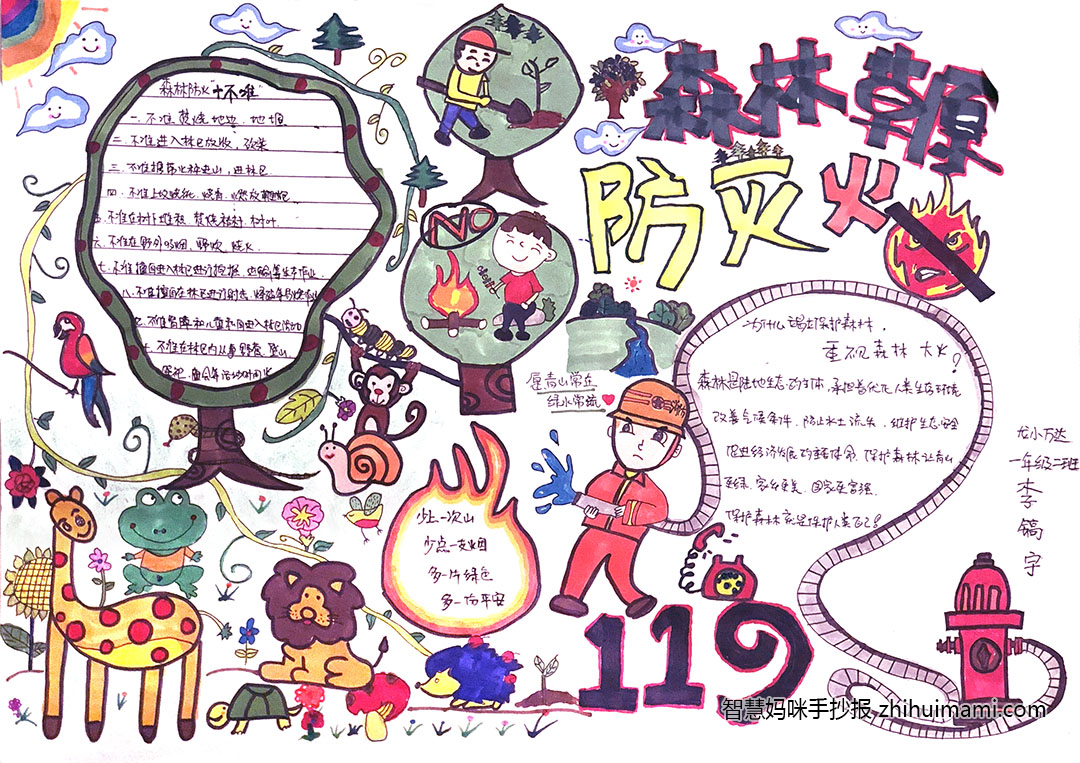 森林草原
防灭火
森林防火"十不准"
一.不准焚烧地边、地埂
二.不准进入林区放牧、砍柴
三.不准携带火种进山、进林区
四.不准上坟烧纸、烧香、燃放鞭炮
五.不准在树下堆放、焚烧秸秆、树叶
六.不准在野外吸烟、野炊、烧火
七.不准擅自进入林区进行挖掘、运输等生产作业
八.不准擅自在林区进行射击
十.不准在林区内从事野营、登山
NO
愿青山常在
绿水常流
为什么要保护森林,
重视森林 大火?
森林是陆地生态的主体,承担着优化人类生态环境
改善气候条件,防止水土流失,维护生态安全
促进经济发展的主要体系,保护森林让青山
更绿,家乡更美,国家更富强.
保护森林就是保护人类自己!
少上一次山
少点一支烟
多一片绿色
多一份平安
119
尤小万达
一年级二班
李
镐
宇
智慧妈咪手抄报 zhihuimami.com